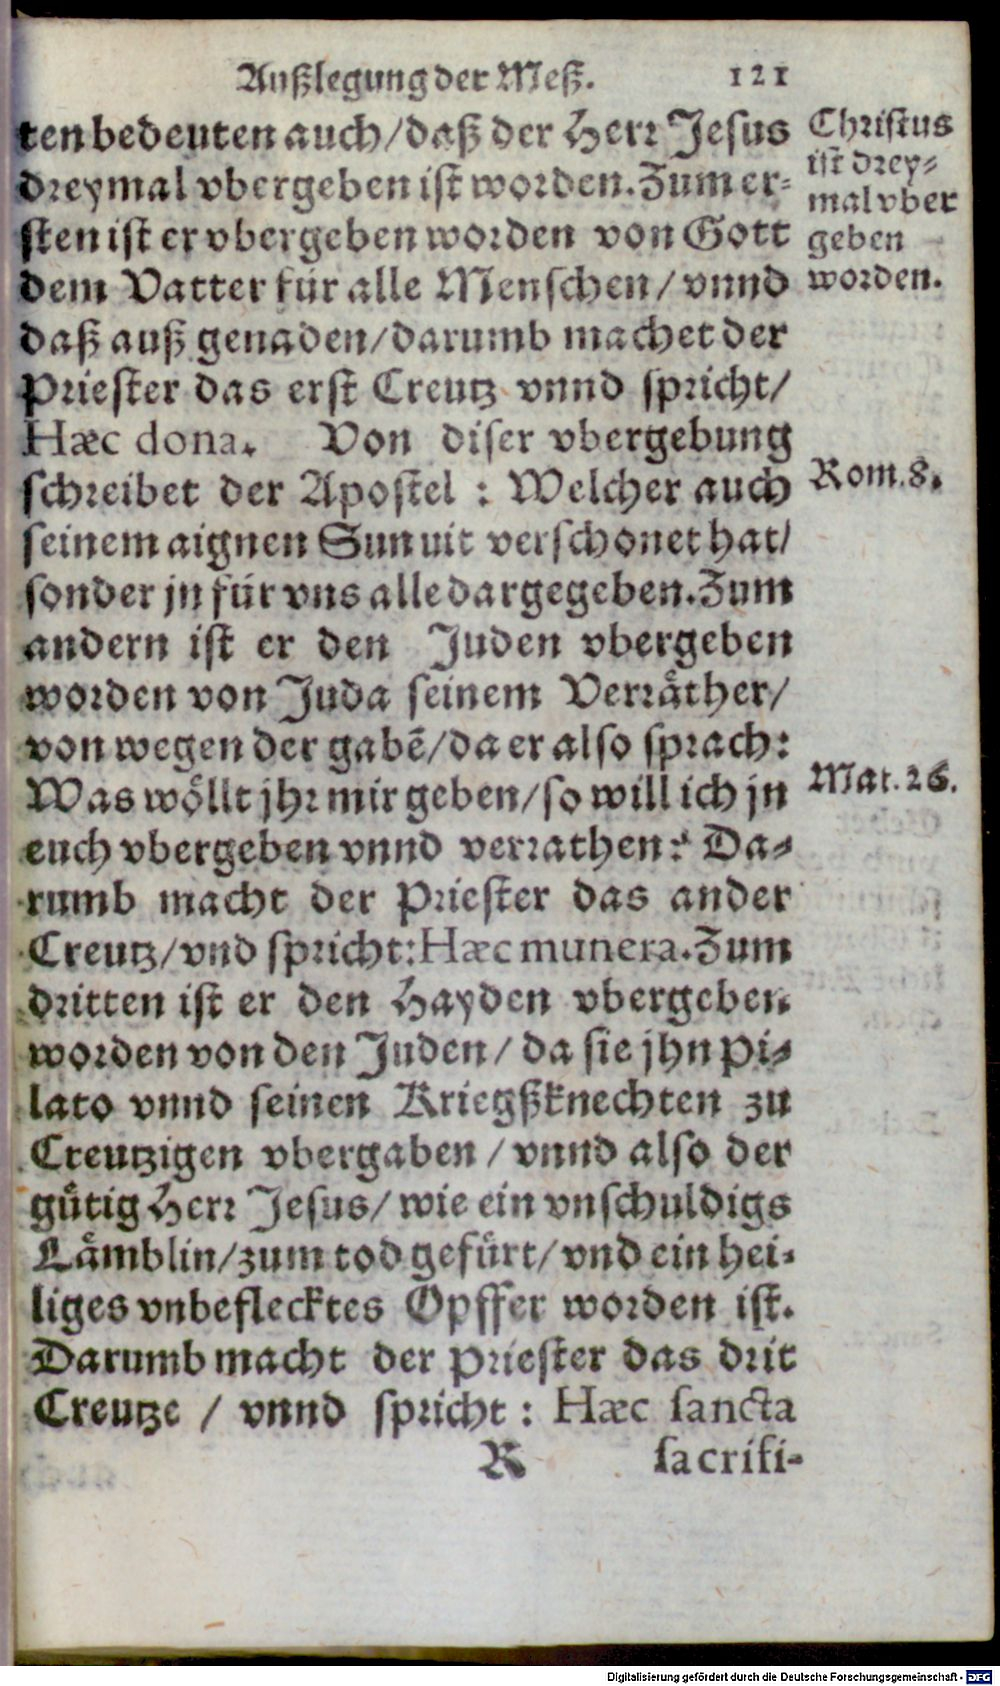 Außlegung der Meß. 121
ten bedeuten auch/daß der Herr Jesus
dreymal vbergeben ist worden. Zum er-
sten ist er vbergeben worden von Gott
dem Vatter für alle Menschen/ vnnd
daß auß genaden/darumb machet der
Priester das erst Creutz vnnd spricht/
Hæc dona. Von diser vbergebung
schreibet der Apostel : Welcher auch
seinem aignen Sun nit verschonet hat/
sonder jn für vns alle dargegeben. Zum
andern ist er den Juden vbergeben
worden von Juda seinem Verräther/
von wegen der gabē/da er also sprach:
Was wöllt jhr mir geben/so will ich jn
euch vbergeben vnnd verrathen? Da-
rumb macht der Priester das ander
Creutz/vnd spricht: Hæc munera. Zum
dritten ist er den Hayden vbergeben
worden von den Juden/ da sie jhn Pi-
lato vnnd seinen Kriegßknechten zu
Creutzigen vbergaben / vnnd also der
gütig Herr Jesus/ wie ein vnschuldigs
Lämblin/zum tod gefürt/ vnd ein hei-
liges vnbeflecktes Opffer worden ist.
Darumb macht der Priester das drit
Creutze / vnnd spricht : Hæc sancta
R sacrifi-
Christus
ist drey-
mal vber
geben
worden.
Rom. 8.
Mat. 26.
Digitalisierung gefördert durch die Deutsche Forschungsgemeinschaft - DFG